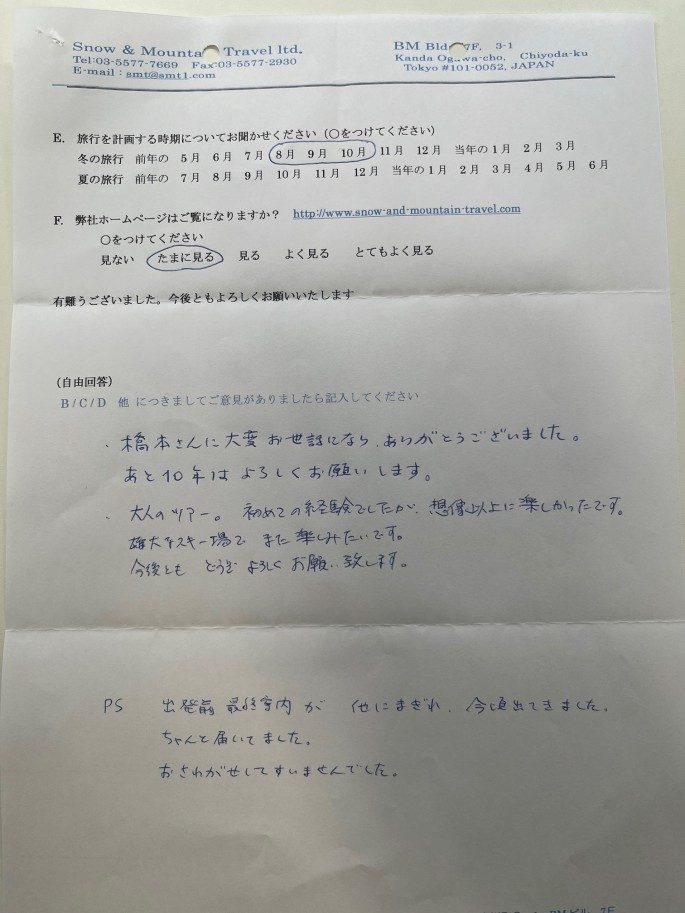 Snow & Mountain Travel ltd.
Tel:03-5577-7669 Fax:03-5577-2930
E-mail : smt@smt1.com
BM Bld 7F. 3-1
Kanda Ogawa-cho, Chiyoda-ku
Tokyo #101-0052, JAPAN
E. 旅行を計画する時期についてお聞かせください（○をつけてください）
冬の旅行 前年の 5月 6月 7月 8月 9月 10月 11月 12月 当年の1月 2月 3月
夏の旅行 前年の 7月 8月 9月 10月 11月 12月 当年の1月 2月 3月 4月 5月 6月
F. 弊社ホームページはご覧になりますか？ http://www.snow-and-mountain-travel.com
○をつけてください
見ない たまに見る 見る よく見る とてもよく見る
有難うございました。今後ともよろしくお願いいたします
（自由回答）
B / C / D 他 につきましてご意見がありましたら記入してください
・橋本さんに大変お世話になり、ありがとうございました。
あと10年はよろしくお願いします。
・大人のツアー。初めての経験でしたが、想像以上に楽しかったです。
雄大なスキー場で また楽しみたいです。
今後とも どうぞ よろしく お願い致します。
PS 出発前 最終案内が 他にまぎれ、今頃出てきました。
ちゃんと届いてました。
おさわがせしてすいませんでした。